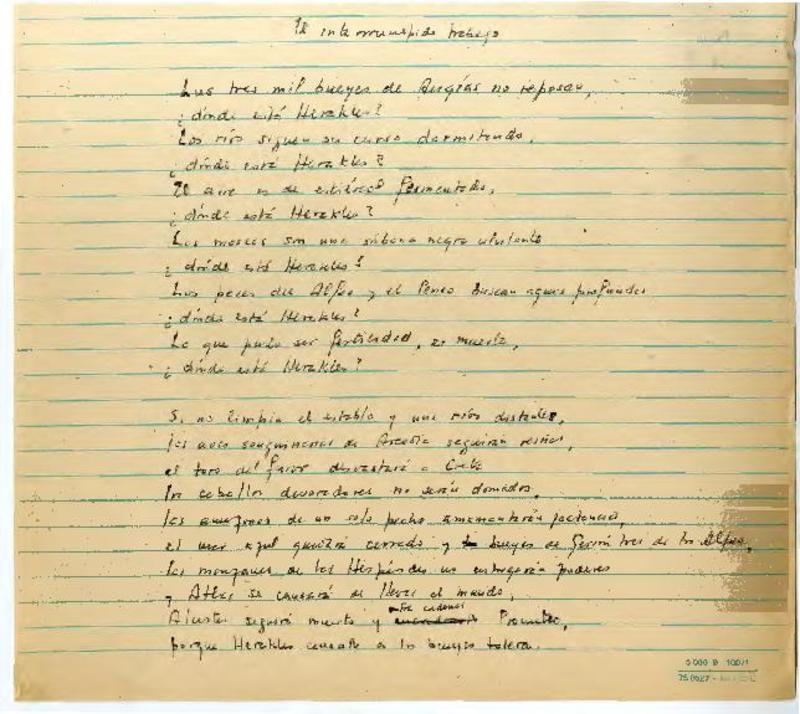 El interrumpido trabajo
Los tres mil bueyes de Augías no reposan,
¿dónde está Herakles?
Los ríos siguen su curso dormitando,
¿dónde está Herakles?
El aire es de estiércol fermentado,
¿dónde está Herakles?
Las moscas son una sábana negra
¿dónde está Herakles?
Los peces del Alfeo y el Peneo buscan aguas profundas
¿dónde está Herakles?
Lo que pudo ser fertilidad, es muerte,
¿dónde está Herakles?
Si no limpia el establo y une ríos distantes,
las aves sanguinarias de Arcadia seguirán
el toro del furor devastará a Creta
los caballos devoradores no serán domados,
las amazonas de un solo pecho amamantarán
el mar azul quedará cerrado y bueyes de Gerión tras de los Alpes,
las manzanas de las Hespérides no entregarán poderes
y Atlas se cansará de llevar el mundo,
seguirá muerto y en cadenas Prometeo,
porque Herakles a los bueyes tolera.